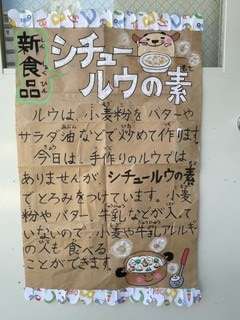 新食品
シチュー
ルウの素
ルウは、小麦粉をバターや
サラダ油などで炒めて作ります。
今日は、手作りのルウでは
ありませんが、シチュールウの素
でとろみをつけています。小麦
粉やバター、牛乳などが入って
いないので、小麦や牛乳アレルギー
の人も食べる
ことができます。